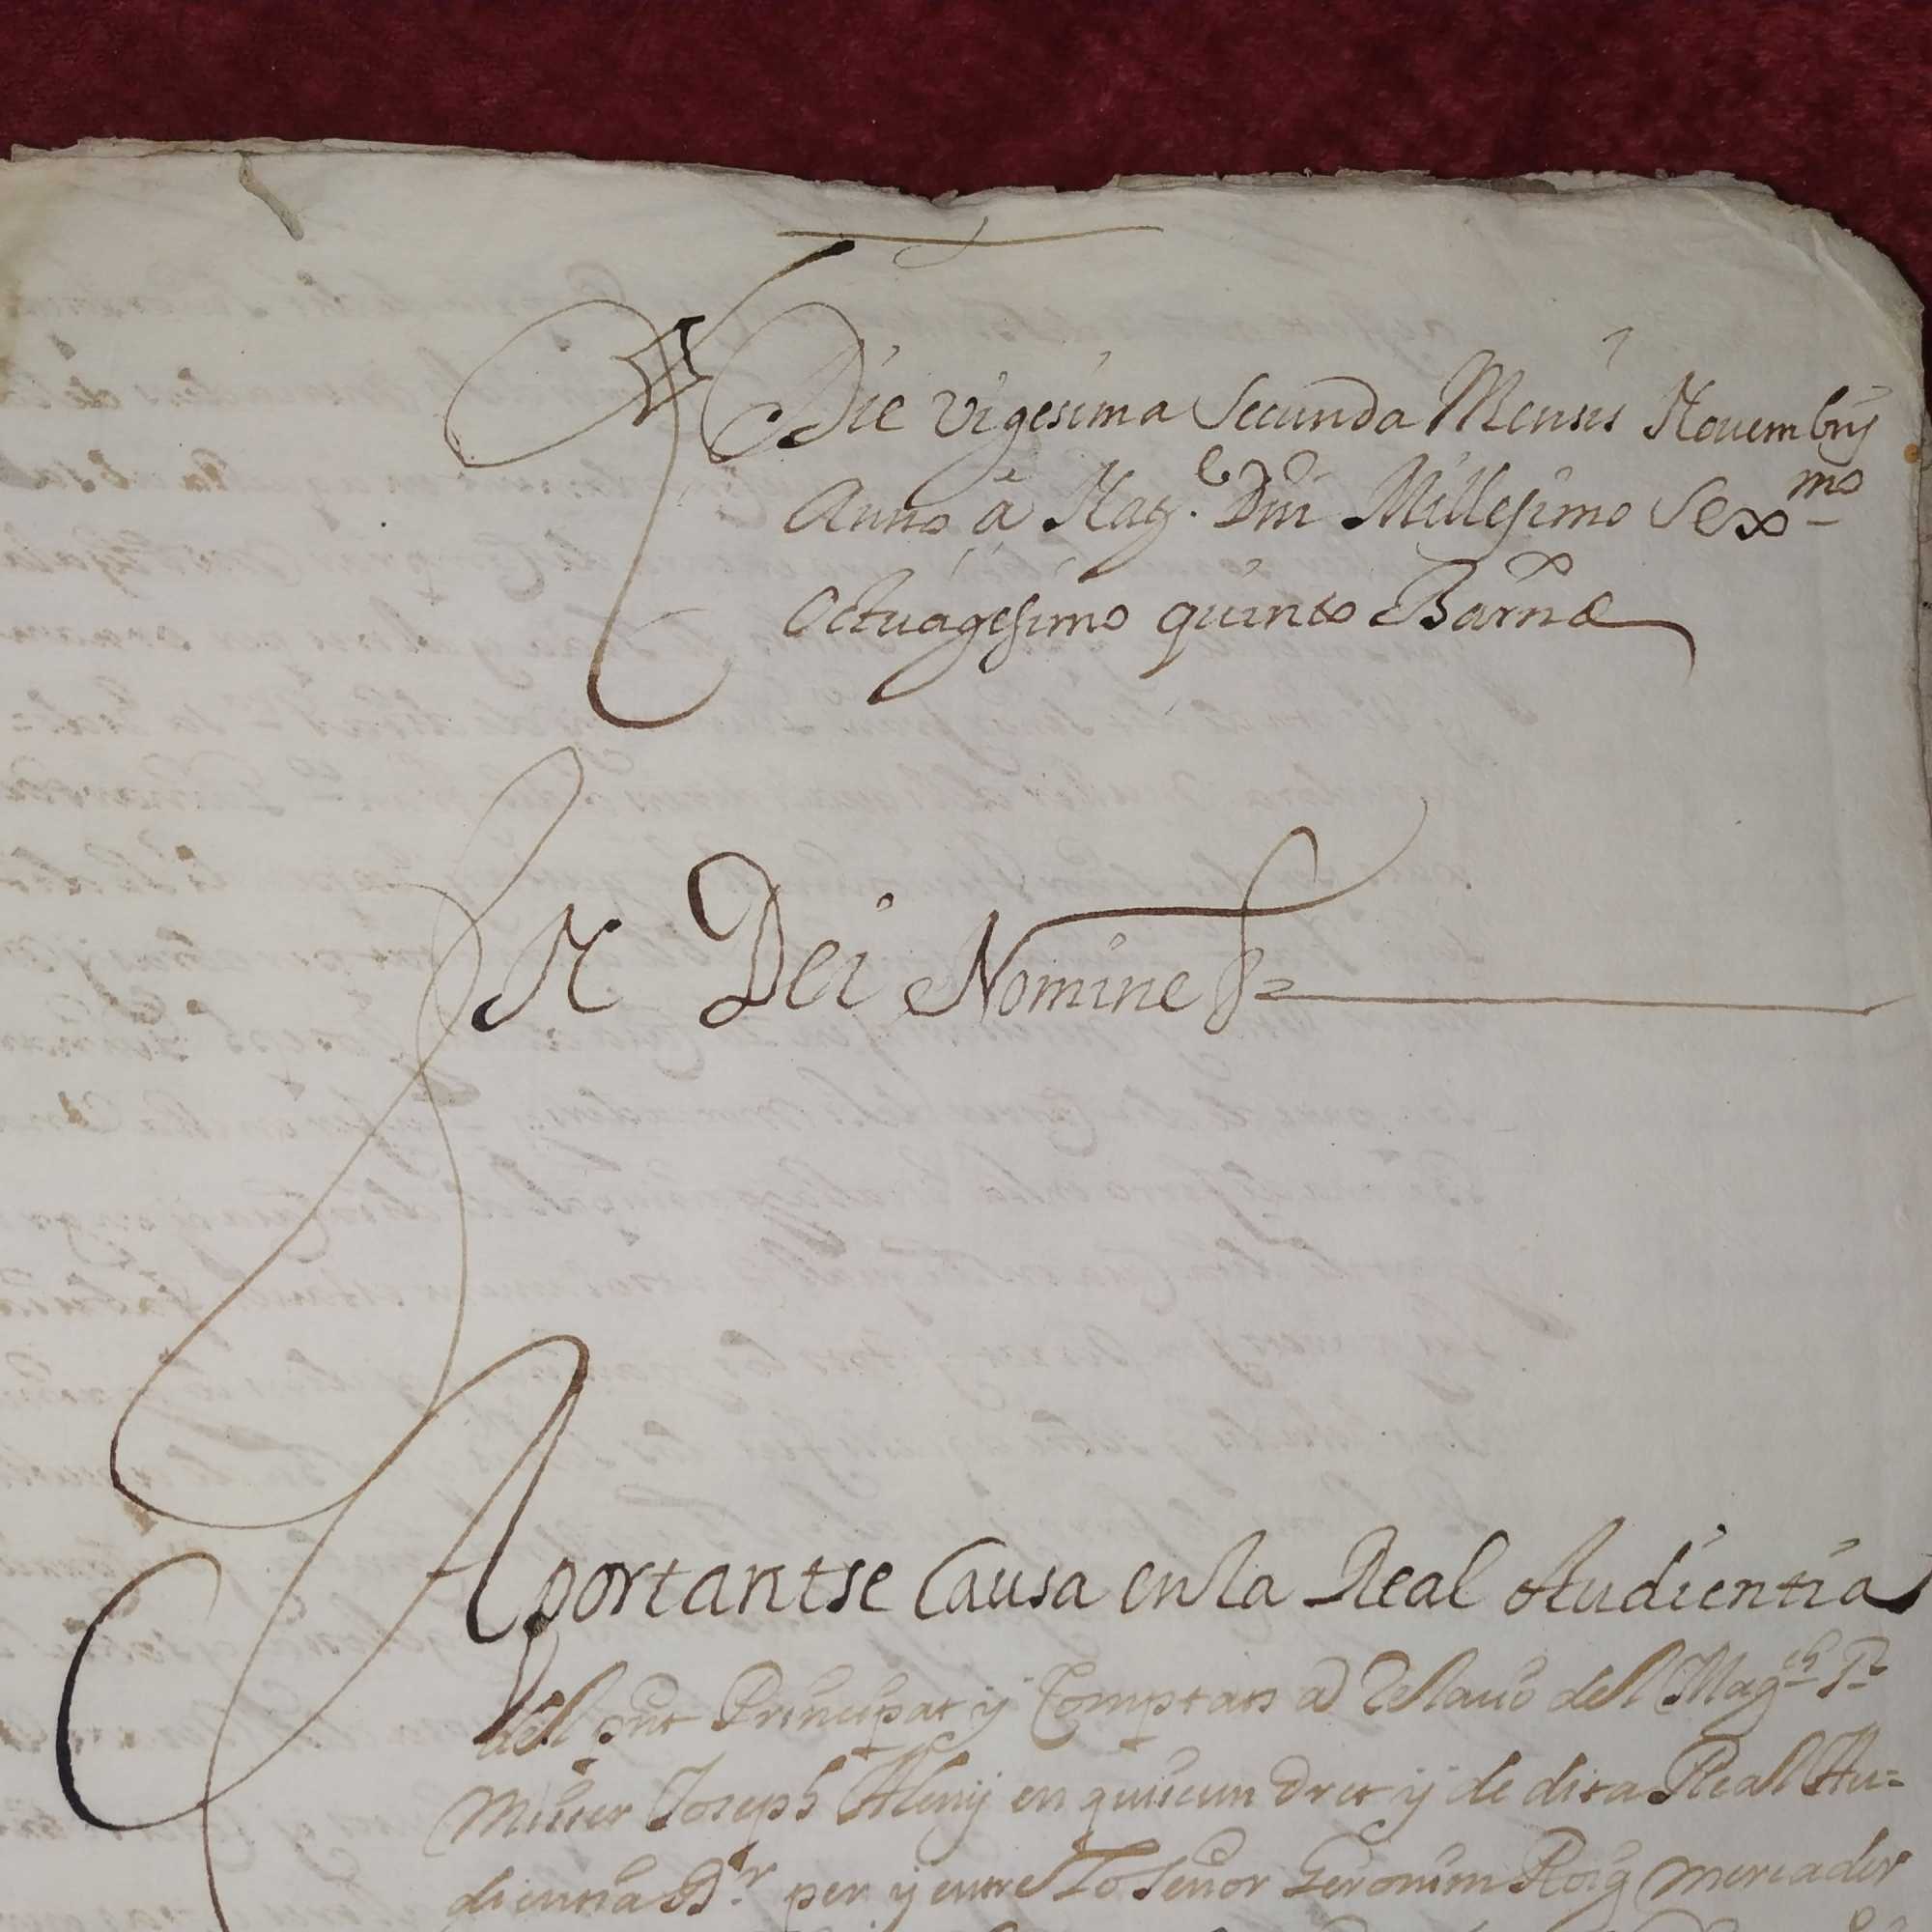 Die vigesima secunda Mensis Novembris
Anno â Nat.e Dñi Millesimo Sexmo
Octuagesimo quinto Barnæ
In Dei Nomine
Aportantse Causa en la Real Audientia
del pnt Principat y Comptats a relatio del Magch
Misser Joseph en quiscun dret y de dita Real Au=
dientia Dr. per y entre lo senor Geronim Roig mercader